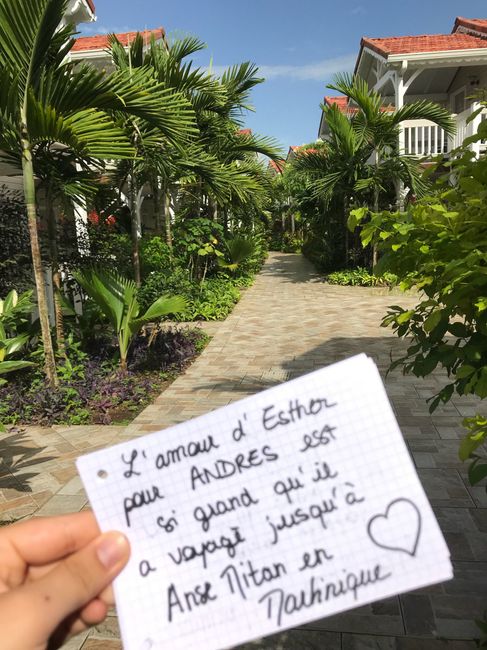 L'amour d'Esther
pour ANDRES est
si grand qu'il
a voyagé jusqu'à
Anse Mitan en
Martinique